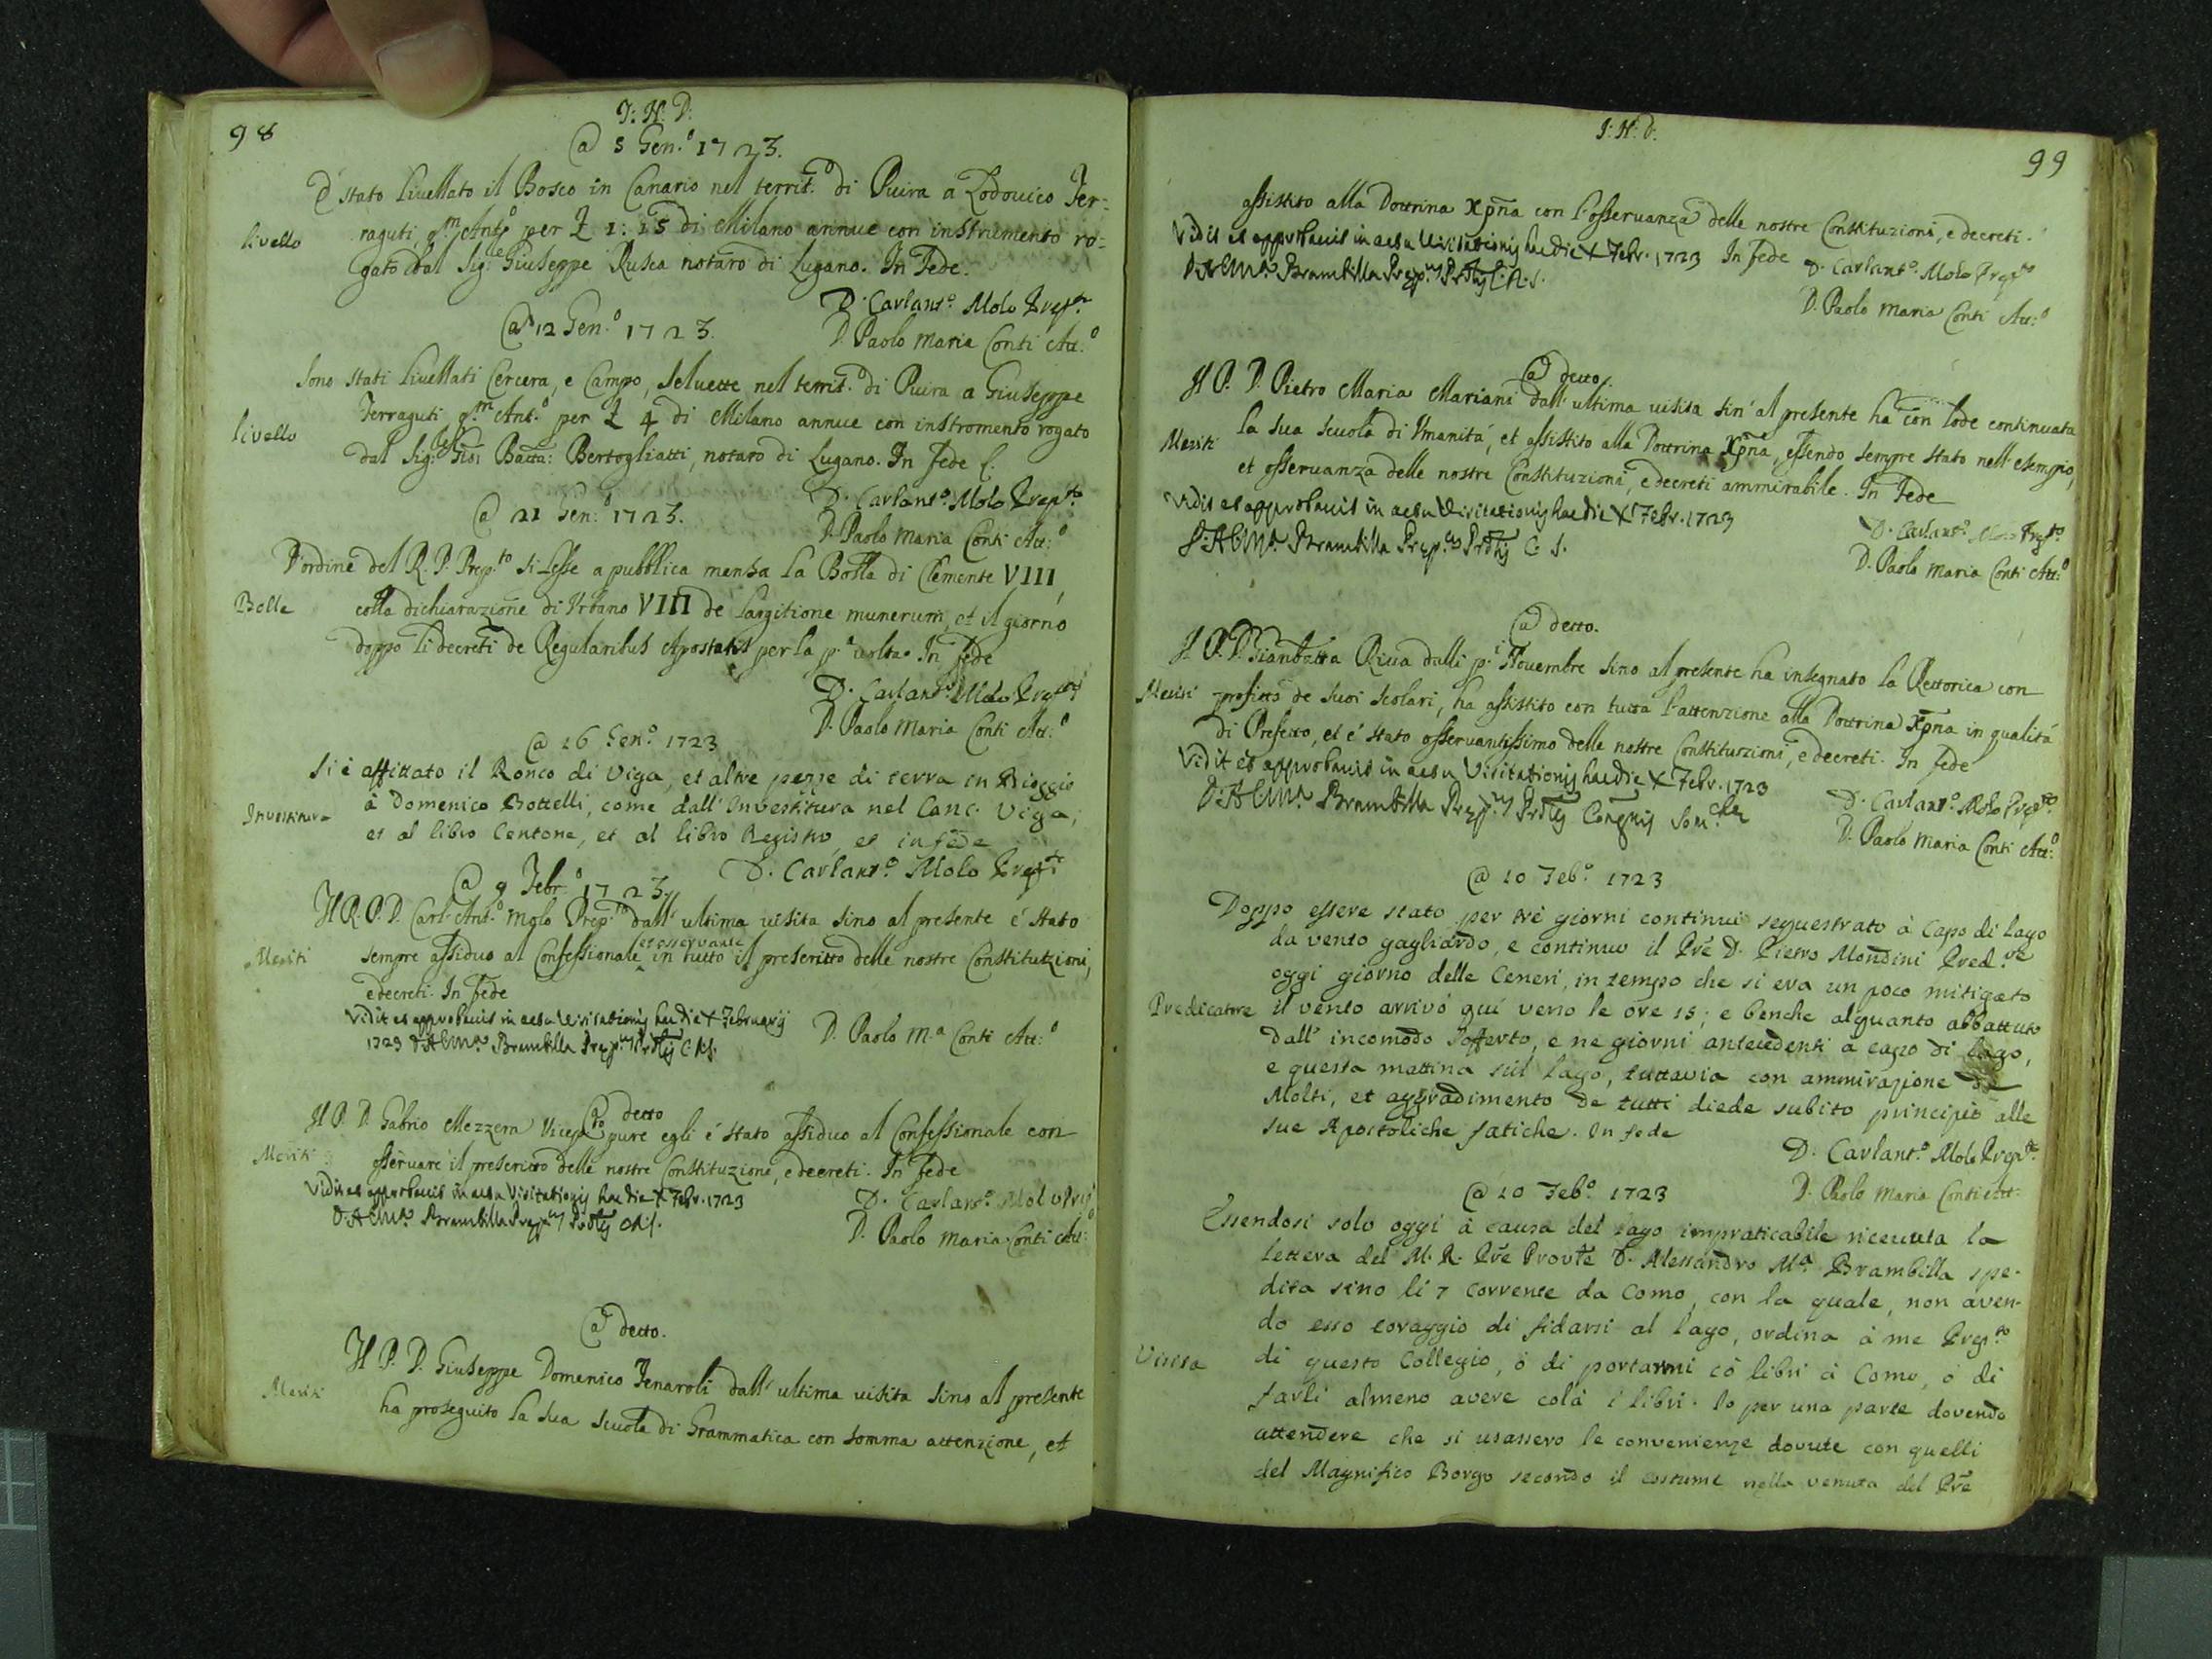 98
J: H: D:
@ 5 Gen.o 1723.
È stato livellato il Bosco in Canario nel territ.o di Puira a Lodovico Fer=
livello
raguti q.m Ant.o per L 1: 15 di Milano annue con instrumento ro=
gato dal Sig.re Giuseppe Rusca notaro di Lugano. In Fede.
D. Carlant.o Molo Prep.to
@ 12 Gen.o 1723.
D. Paolo Maria Conti Att:o
Sono stati livellati Cercera, e Campo, Selvette nel territ.o di Puira a Giuseppe
Ferraguti q.m Ant.o per L 4 di Milano annue con instromento rogato
livello
dal Sig.re Gio: Batta: Bertogliatti, notaro di Lugano. In fede
D. Carlant.o Molo Prep.to
@ 21 Gen.o 1723.
D. Paolo Maria Conti Att:o
D'ordine del R. P. Prep.to si lesse a pubblica mensa la Bolla di Clemente VIII,
Bolla
colla dichiarazione di Urbano VIII de largitione munerum, et il giorno
doppo li decreti de Regularibus Apostatis per la p.a volta. In fede
D. Carlant.o Molo Prep.to
D. Paolo Maria Conti Att:o
@ 26 Gen.o 1723
Si è affittato il Ronco di Viga, et altre pezze di terra in Bioggio
Investitura
à Domenico Bottelli, come dall' Investitura nel Canc. Viga,
et al libro Centone, et al libro Registro, et in fede
D. Carlant.o Molo Prep.to
@ 9 Febr.o 1723
Il R. P. D. Carl' Ant.o Molo Prep.to dall' ultima visita sino al presente é stato
Meriti
sempre assiduo al Confessionale et osservante in tutto il prescritto delle nostre Constitutzioni,
e decreti. In fede
Vidit et approbavit in actu Visitationis hac die X Februarij
1723 D. A. M.a Brambilla Prep.us Prõlis C.R.S.
D. Paolo M.a Conti Att:o
@ detto
Il P. D. Gabrio Mezzera Vicep.to pure egli é stato assiduo al Confessionale con
Meriti
osservare il prescritto delle nostre Constituzione, e decreti. In fede
Vidit et approbavit in actu Visitationis hac die X Febr. 1723
D. Carlant.o Molo Prep.to
D. A. M.a Brambilla Prep.us Prõlis C.R.S.
D. Paolo Maria Conti Att:o
@ detto.
Il P. D. Giuseppe Domenico Tenaroli dall' ultima visita sino al presente
Meriti
ha proseguito la sua scuola di Grammatica con somma attenzione, et
J: H: D.
99
assistito alla Dottrina Xpña con l'osservanza delle nostre Constituzioni, e decreti.
Vidit et approbavit in actu Visitationis hac die X Febr. 1723 In fede D. Carlant.o Molo Prep.to
D. A. M.a Brambilla Prep.us Prõlis C.R.S.
D. Paolo Maria Conti Att:o
@ detto.
Il P. D. Pietro Maria Mariani dall' ultima visita sin' al presente ha con lode continuata
Meriti
la sua scuola di Umanitá, et assistito alla Dottrina Xpña, essendo sempre stato nell' esempio,
et osservanza delle nostre Constituzioni, e decreti ammirabile. In Fede
Vidit et approbavit in actu Visitationis hac die X Febr. 1723
D. Carlant.o Molo Prep.to
D. A. M.a Brambilla Prep.us Prõlis C. S.
D. Paolo Maria Conti Att:o
@ detto.
Il P. D. Gianbatta Riva dalli p.i Novembre sino al presente ha insegnato la Rettorica con
Meriti
profitto de suoi scolari, ha assistito con tutta l'attenzione alla Dottrina Xpña in qualitá
di Prefetto, et é stato osservantissimo delle nostre Constituzioni, e decreti. In fede
Vidit et approbavit in actu Visitationis hac die X Febr. 1723
D. Carlant.o Molo Prep.to
D. A. M.a Brambilla Prep.us Prõlis Congnis Som.chae
D. Paolo Maria Conti Att:o
@ 10 Feb.o 1723
Doppo essere stato per trè giorni continui sequestrato à Capo di lago
da vento gagliardo, e continuo il Prẽ D. Pietro Mondini Pred.re
oggi giorno delle Ceneri, in tempo che si era un poco mitigato
Predicatore
il vento arrivó quí verso le ore 15; e benche alquanto abbattuto
dall' incomodo sofferto, e ne giorni antecedenti a capo di lago,
e questa mattina sul lago, tuttavia con ammirazione di
Molti, et aggradimento de tutti diede subito principio alle
sue Apostoliche fatiche. In fede
D. Carlant.o Molo Prep.to
@ 10 Feb.o 1723
D. Paolo Maria Conti Att:
Essendosi solo oggi à causa del lago impraticabile ricevuta la
lettera del M. R. Prẽ Provle D. Alessandro M.a Brambilla spe-
dita sino li 7 corrente da Como, con la quale, non aven-
do esso coraggio di fidarsi al lago, ordina à me Prep.to
Visita
di questo Collegio, ò di portarmi cò libri à Como, ò di
farli almeno avere colà i libri. Io per una parte dovendo
attendere che si usassero le convenienze dovute con quelli
del Magnifico Borgo secondo il costume nella venuta del Prẽ